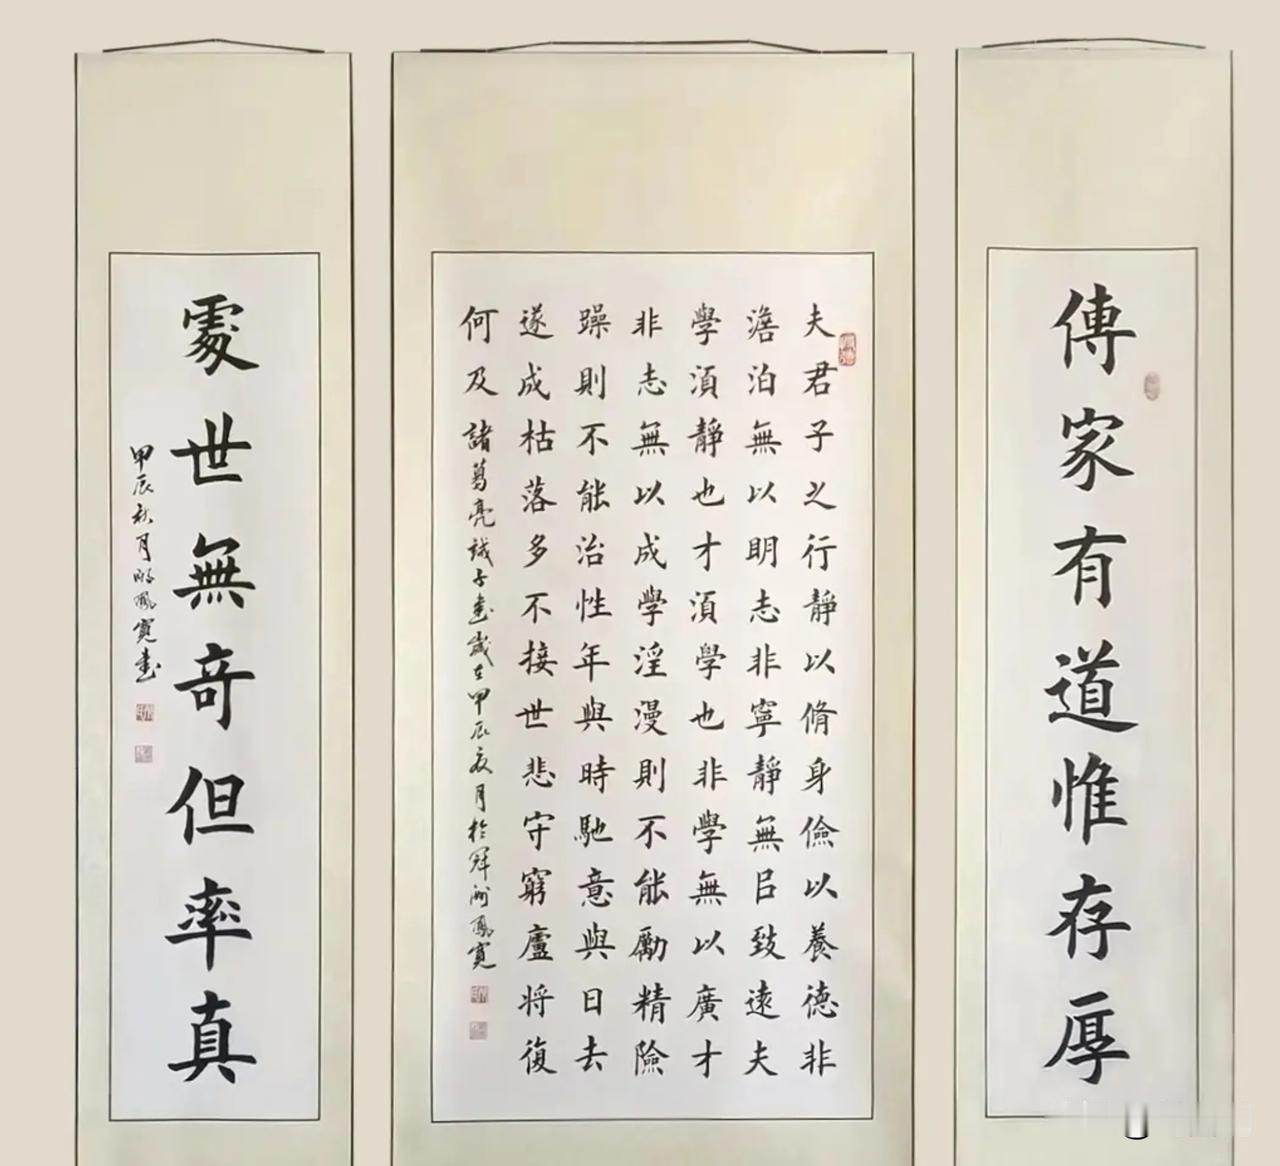 傳家有道惟存厚
夫君子之行靜以脩身儉以養德非
澹泊無以明志非寧靜無㠯致遠夫
學湏靜也才湏學也非學無以廣才
非志無以成學淫漫則不能勵精險
躁則不能治性年與時馳意與日去
遂成枯落多不接世悲守窮廬将復
何及 諸葛亮誡子書歲在甲辰夏月於洲鳳寬
處世無奇但率真
甲辰秋月鳳寬書